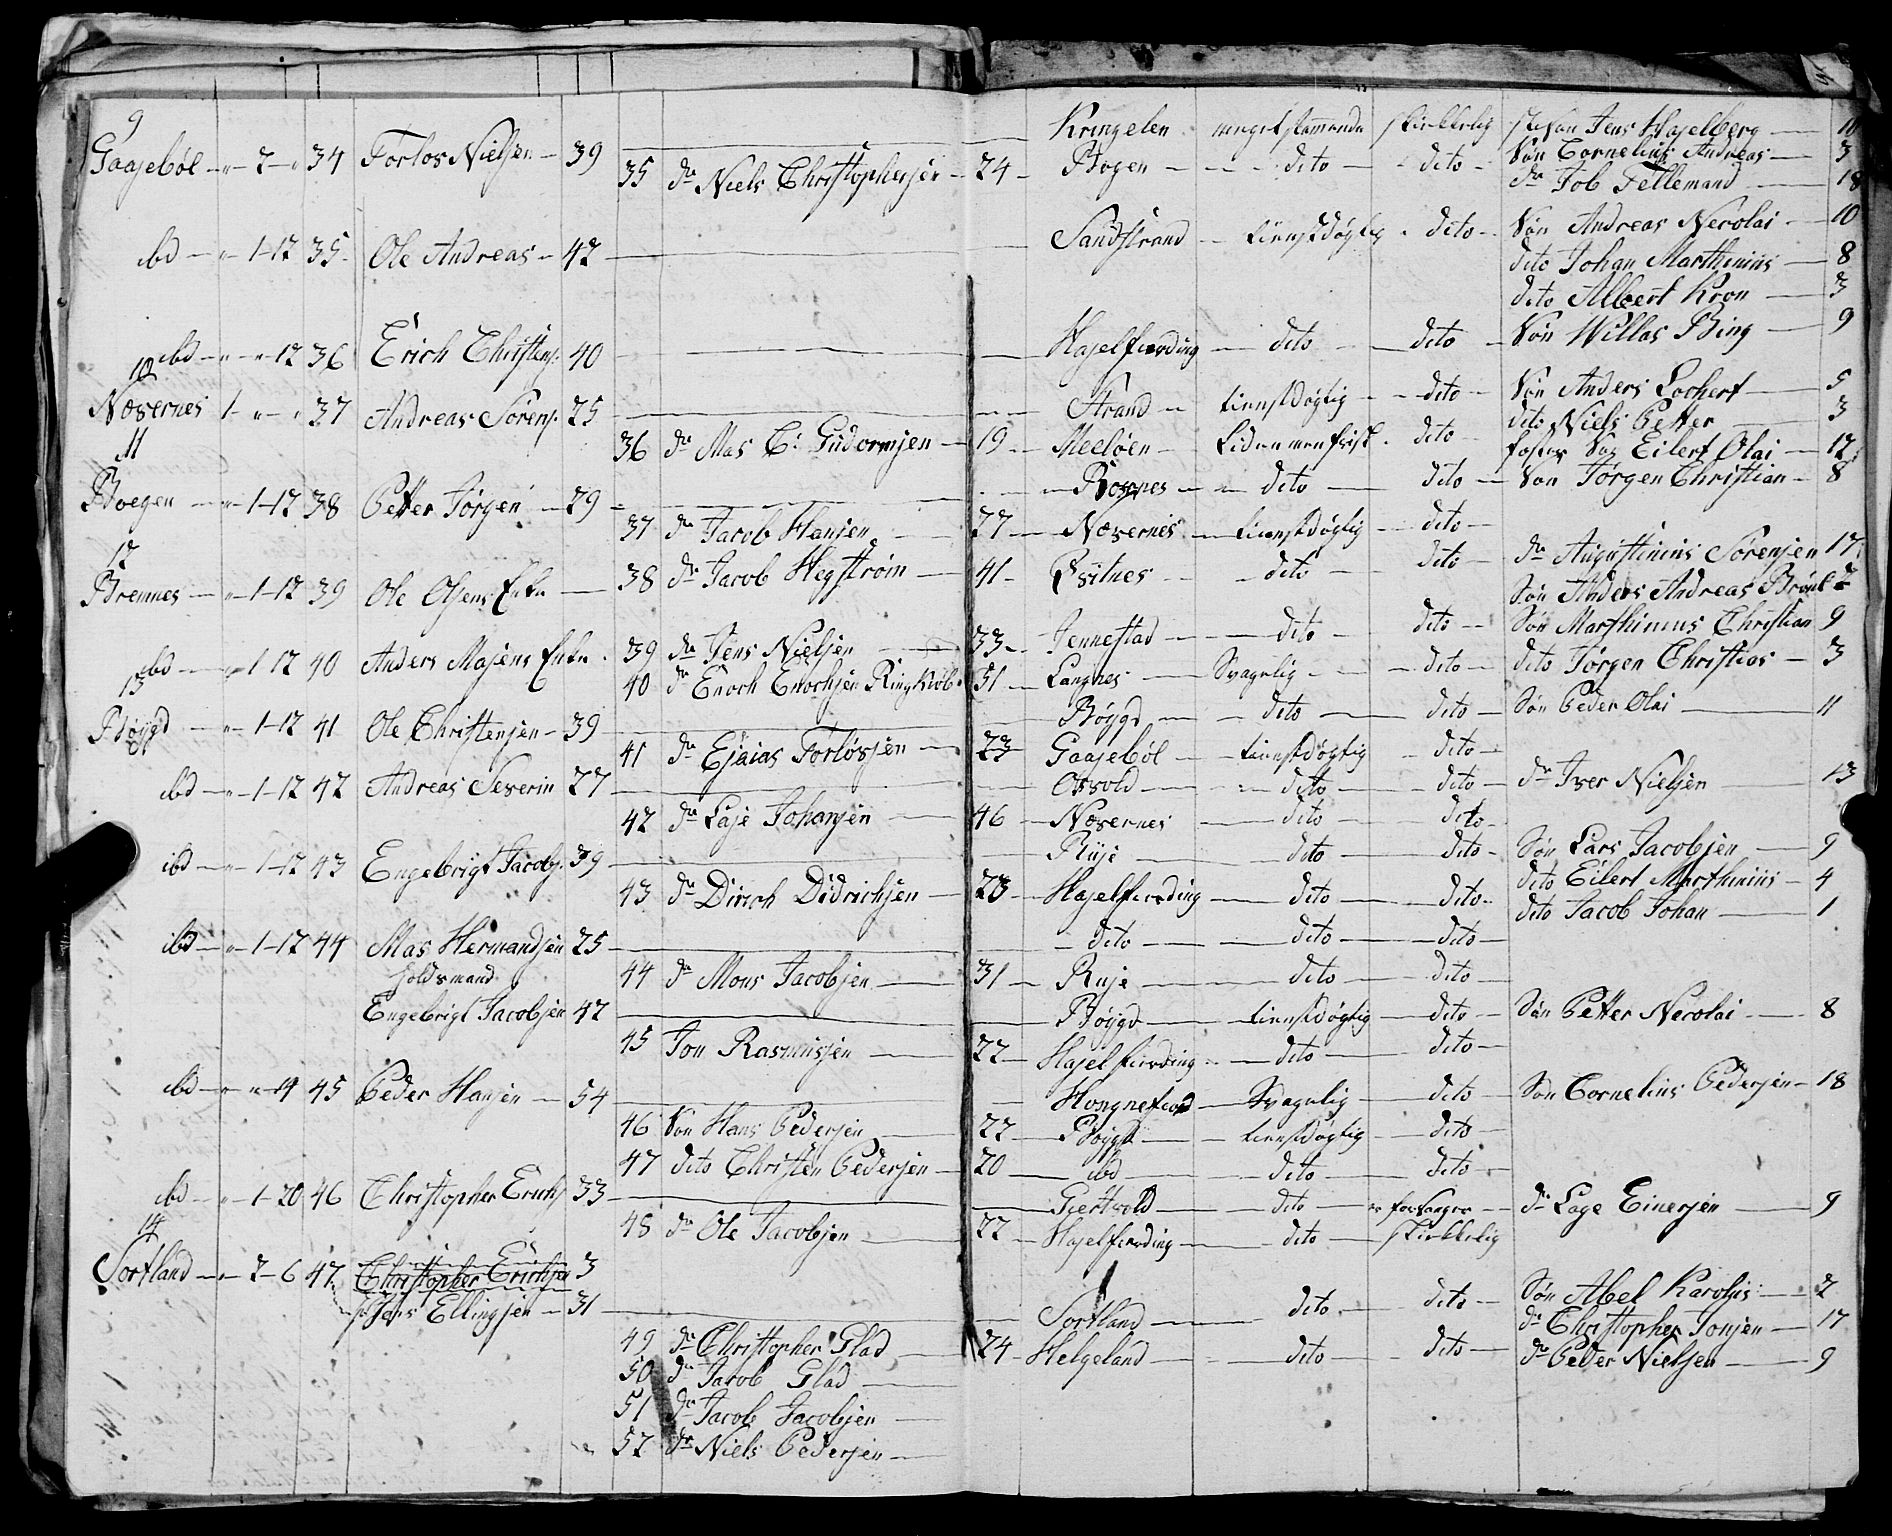 9
Gaasebøl — " — 2 — " 34 Torlos Nielsen — 39 — Kringelen meget stammende skickelig stivsøn Jens Hasselberg — 10
35 dr Niels Christophersen — 24 — Bogen — dito — dito — Søn Cornelius Andreas — 3
dr Job Tellemand — 18
ibd — " — 1-12 35 Ole Andreas — 42 — Sandstrand — tienstdøgtig — dito — Søn Andreas Nerolai — 10
dito Johan Marthinius — 8
dito Albert Kron — 3
ibd — " — " — 12 36 Erich Christens. 40 — Haselfiording — dito — dito — Søn Willas Bing — 9
10
Næsernes 1 — " — " 37 Andreas Sörens. 25 — Strand — tienstdøgtig — dito — Søn Anders Lochert — 5
dito Niels Petter — 3
36 dr Mas C: Gudormsen — 19 — Meeløen — liden men frisk. dito — foster Søn Eilert Olai — 12
11
Boegen — " — 1-12 38 Petter Jørgen — 29 — Roernes — dito — dito — Søn Jörgen Christian — 8
37 dr Jacob Hansen — 27 — Næsernes — tienstdøgtig — dito —
12
38 dr Jacob Hegström — 41 — Qvitnes — dito — dito — dr Augustinus Sörensen 17
Bremnes — " — 1-12 39 Ole Olsens Enke —
Søn Anders Andreas Brønl 2
39 dr Jens Nielsen — 33 — Jennestad — dito — dito — Søn Marthinus Christian 9
ibd — " — 1 12 40 Anders Masens Enke .
40 dr Enoch Enochsen Ringkiøb. 51 — Langnes — Svagelig — dito — dito Jörgen Christias — 3
13
Bøygd — " — 1-12 41 Ole Christensen — 39 — Bøygd — dito — dito — Søn Peder Olai — 11
41 dr Esaias Torløsjen — 23 — Gaasebøl — tienstdøgtig — dito —
ibd — " — 1-12 42 Andreas Severin 27 — Osvold — dito — dito — dr Iver Nielsen — 13
42 dr Laje Johansen — 46 — Næsernes — dito — dito —
ibd — " — 1-12 43 Engebrigt Jacobs. 39 — Ruje — dito — dito — Søn Lars Jacobsen — 9
43 dr Dirich Didrichsen — 23 — Haselfiording — dito — dito — dito Eilert Marthinius — 4
dito Jacob Johan — 1
ibd — " — 1-12 44 Mas Hermandsen 25 — dito — dito — dito —
holdsmand
44 dr Mons Jacobsen — 31 — Ruje — dito — dito —
Engebrigt Jacobsen 42 — Bøygd — tienstdøgtig — dito — Søn Petter Nerolai — 8
45 Jon Rasmusjen — 22 — Haselfiording — dito — dito —
ibd — " — " — 4 45 Peder Hansen — 54 — Hongnefiord — Svagelig — dito — Søn Cornelius Pedersen — 18
46 Søn Hans Pedersen — 22 — Bøygd — tienstdøgtig — dito —
47 dito Christen Pedersen — 20 — ibd — dito — dito —
ibd — " — 1-20 46 Christopher Erichs. 33 — Giertvold — dito — er forfangen — dr Lage Einersen — 9
48 dr Ole Jacobsen — 22 — Haselfiording — dito — skickelig
14
Sortland — " — 2-6 47 Christopher Erichsen 3
Hans Ellingsen — 31 — Sortland — dito — dito — Søn Abel Karolus — 2
dr Christopher Jonsen — 17
49 dr Christopher Glad — 24 — Helgeland — dito — dito — dr Peder Nielsen — 9
50 dr Jacob Glad —
51 dr Jacob Jacobsen —
52 dr Niels Pedersen —